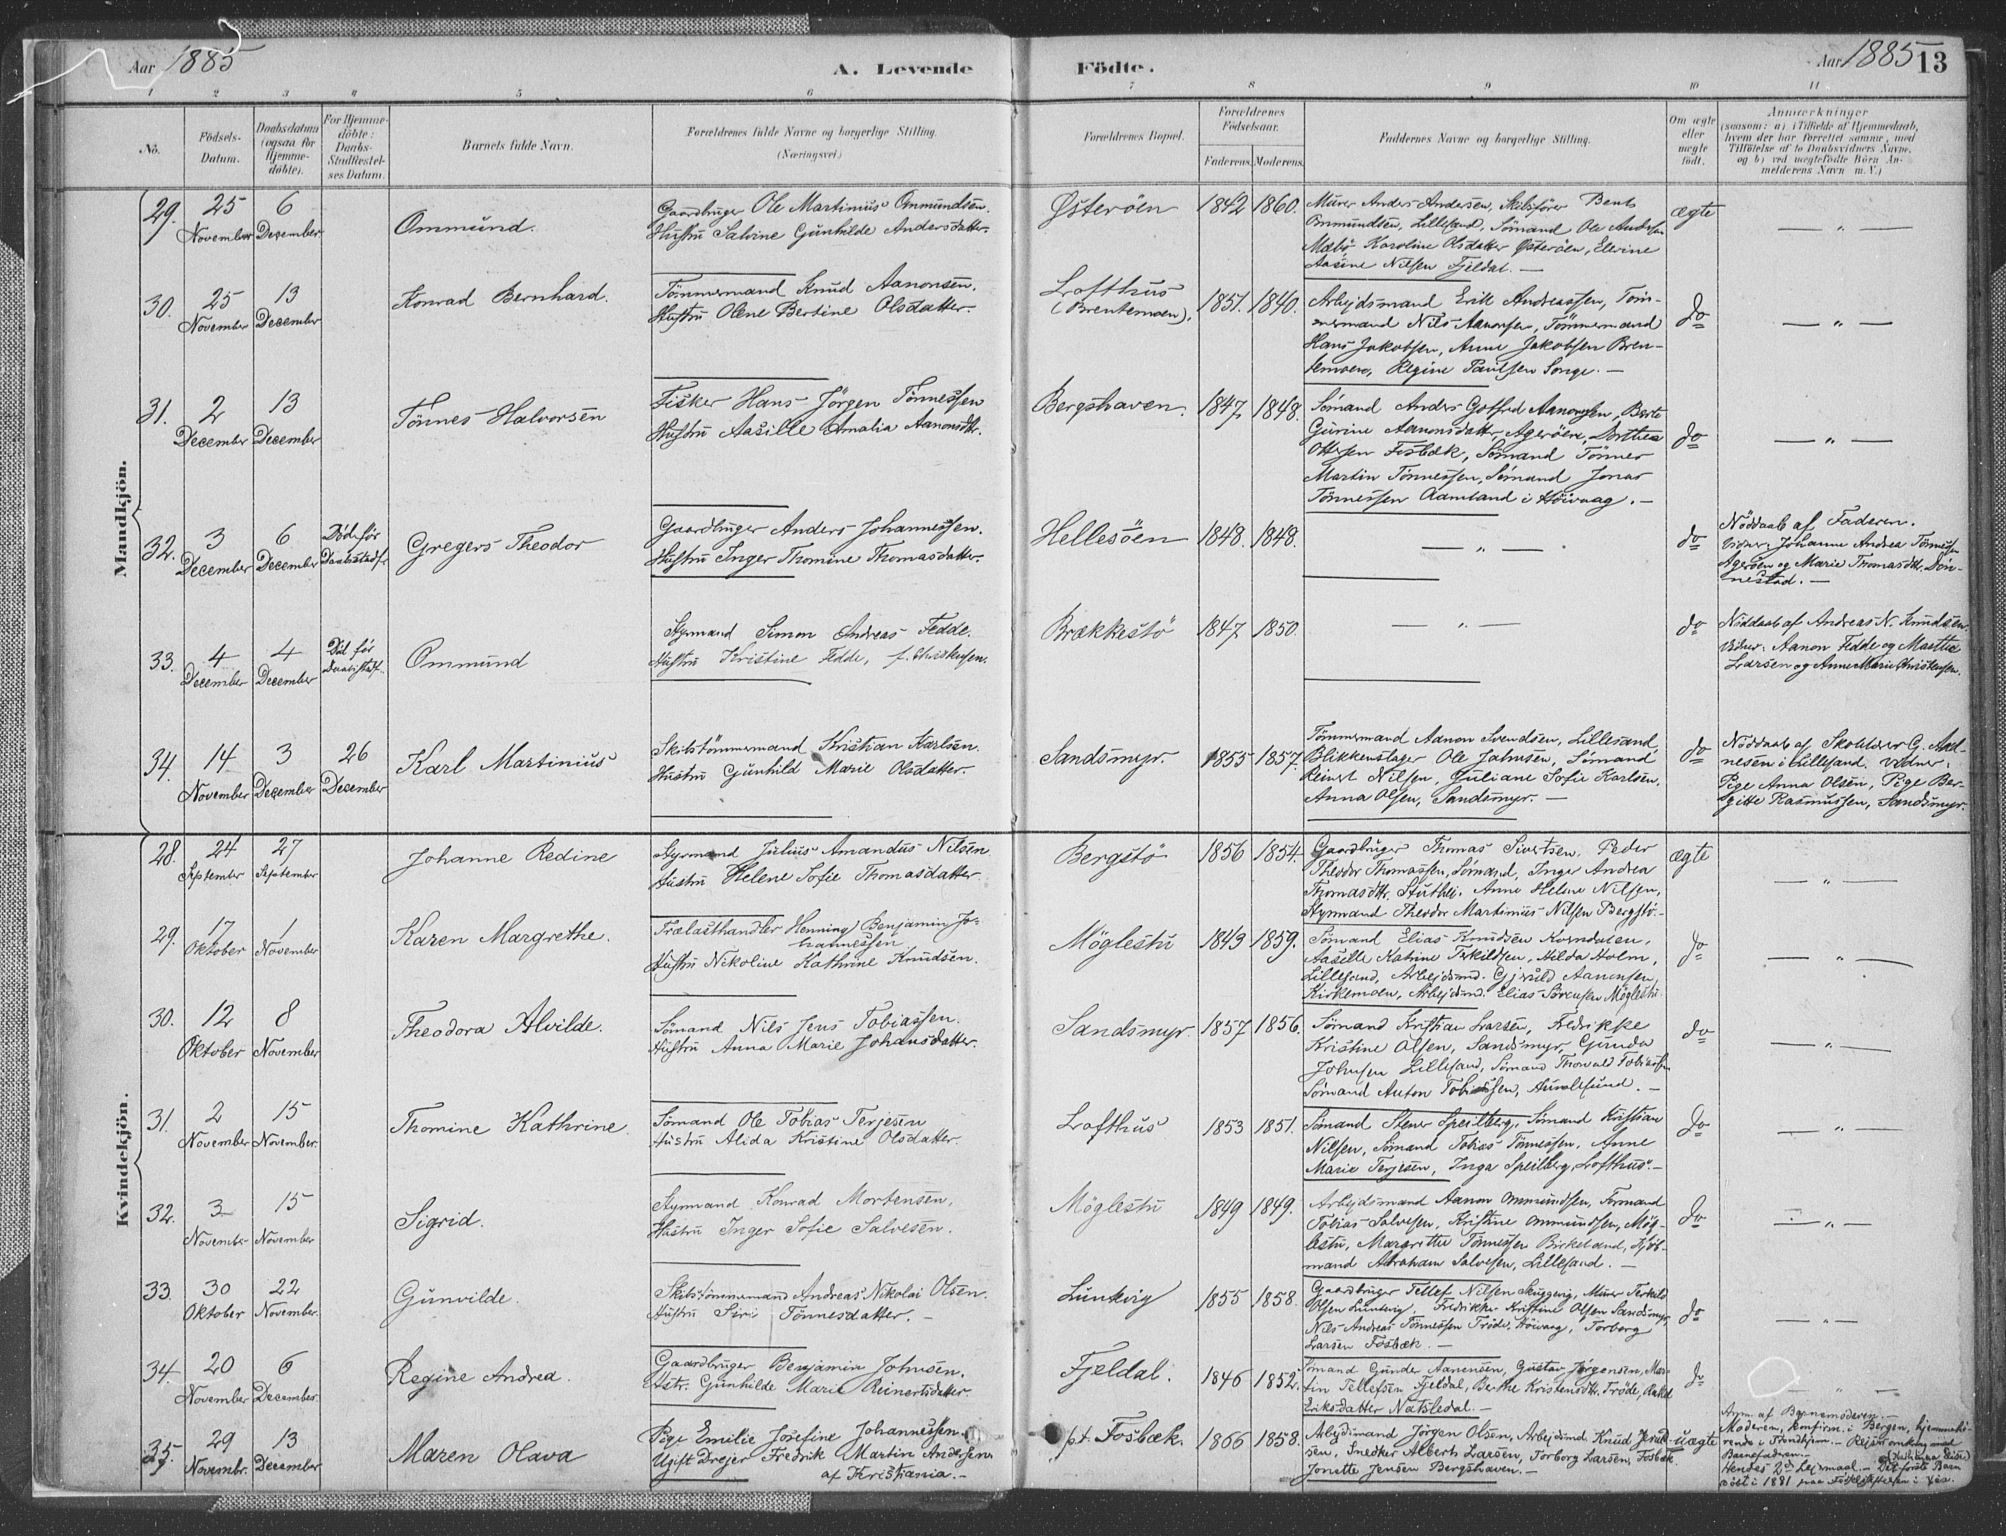 Aar 1885
A. Levende
Födte.
Aar 1885
13
1 2 3 4 5 6 7 8 9 10 11
No.
Födsels-Datum.
Daabsdatum (ogsaa for Hjemme-döbte).
For Hjemme-döbte: Daabs-Stadfæstel-ses Datum.
Barnets fulde Navn.
Forældrenes fulde Navne og borgerlige Stilling. (Næringsvei)
Forældrenes Bopæl.
Forældrenes Födselsaar.
Faderens. Moderens.
Faddernes Navne og borgerlige Stilling.
Om ægte eller uægte födt.
Anmærkninger
(saasom: a) i Tilfælde af Hjemmedaab,
hvem der har forrettet samme, med
Tilföielse af to Daabsvidners Navne,
og b) ved uægtefödte Börn An-
melderens Navn m. V.)
Mandkjön.
29. 25 November 6 December Ommund.
Gaardbruger Ole Martinius Ommundsen.
Hustru Salvine Gunhilde Andersdatter.
Østeröen 1842 1860.
Murer Anders Andersen, Skibsförer Bent
Ommundsen, Lillesand, Sömand Ole Andersen
Mæbö, Karoline Olsdatter Österöen, Elevine
Aasine Nilsen Fjeldal. —
ægte — " —
30. 25 November 13 December Konrad Bernhard.
Tömmermand Knud Aanonsen.
Hustru Olene Bertine Olsdatter.
Lofthus (Brentemoen). 1851. 1840.
Arbejdsmand Erik Andreassen, Töm-
mermand Nils Aanonsen, Tömmermand
Hans Jakobsen, Anne Jakobsen Bren-
temoen, Regine Paulsen Songe. —
do — " —
31. 2 December 13 December Tönnes Halvorsen
Fisker Hans Jörgen Tönnessen
Hustru Aasille Amalia Aanonsdtr.
Bergshaven. 1847 1848.
Sömand Anders Gotfred Aanonsen, Berte
Gurine Aanonsdatter, Ageröen, Dorthea
Ottersen Fosbæk, Sömand Tönnes
Martin Tönnessen, Sömand Jonas
Tönnessen Aamland i Höivaag. —
do — " —
32. 3 December 6 December Död för Daabsstadf. Gregers Theodor
Gaardbruger Anders Johannessen.
Hustru Inger Thomine Thomasdatter.
Hellesöen 1848. 1848.
— " —
do
Nöddaab af Faderen.
Vidner: Johanne Andrea Tönnessen
Ageröen og Marie Thomasdtr. Dön-
nestad. —
33. 4 December 4 December Död för Daabsstadf. Ommund
Styrmand Simon Andreas Fedde.
Hustru Kristine Fedde, f. Christensen.
Brækkestö 1847 1850.
— " —
do
Nöddaab af Andreas N. Knudsen.
Vidner: Aanon Fedde og Marthe
Larsen og Anne Marie Christensen.
34. 14 November 3 December 26 December Karl Martinius
Skibstömmermand Kristian Karlsen.
Hustru Gunhild Marie Olsdatter.
Sandsmyr. 1855 1857.
Tömmermand Aanon Svendsen, Lillesand,
Blikkenslager Ole Johnsen, Sömand
Reinert Nilsen, Juliane Sofie Karlsen,
Anna Olsen, Sandsmyr. —
do
Nöddaab af Skolelærer G.
nesen i Lillesand. Vidner:
Pige Anna Olsen, Pige Ber-
gitte Rasmussen, Sandsmyr.
Kvindekjön.
28. 24 September 27 September Johanne Redine
Styrmand Julius Amandus Nilsen
Hustru Helene Sofie Thomasdatter.
Bergstö 1856 1854.
Gaardbruger Thomas Sivertsen, Peder
Theodor Thomassen, Sömand, Inger Andrea
Thomasdtr. Stuthei, Anne Helene Nilsen,
Styrmand Theodor Martinius Nilsen Bergstö. —
ægte — " —
29. 17 Oktober 1 November Karen Margrethe.
Trælasthandler Henning Benjamin Jo-
hannessen
Hustru Nikoline Kathrine Knudsen.
Möglestu 1849 1859.
Sömand Elias Knudsen Korndalen,
Aaselle Katrine Terkildsen, Hilda Holm,
Lillesand, Arbejdsmd. Gjeruld Aanonsen,
Kirkemoen, Arbejdsmd. Elias Sörensen Möglestu.
do — " —
30. 12 Oktober 8 November Theodora Alvilde.
Sömand Nils Jens Tobiassen.
Hustru Anna Marie Johansdatter.
Sandsmyr. 1857 1856.
Sömand Kristian Larsen, Fredrikke
Kristine Olsen, Sandsmyr, Gunda
Johnsen Lillesand, Sömand Thorvald Tobiassen
Sömand Anton Tobiassen, Aurelsund. —
do — " —
31. 2 November 15 November. Thomine Kathrine.
Sömand Ole Tobias Terjesen
Hustru Alida Kristine Olsdatter.
Lofthus 1853 1851.
Sömand Stener Speilberg, Sömand Kristian
Nilsen, Sömand Tobias Tönnessen, Anne
Marie Terjesen, Inga Speilberg, Lofthus. —
do — " —
32. 3 November 15 November Sigrid.
Styrmand Konrad Mortensen,
Hustru Inger Sofie Salvesen.
Möglestu 1849 1849.
Arbejdsmand Aanon Ommundsen, Formand
Tobias Salvesen, Kristine Ommundsen, Mög-
lestu, Margrethe Tönnessen Birkeland, Kjöb-
mand Abraham Salvesen, Lillesand. —
do — " —
33. 30 Oktober 22 November. Gunvilde.
Skibstömmermand Andreas Nikolai Olsen.
Hustru Siri Tönnesdatter. —
Lunkvig 1855 1858.
Gaardbruger Tellef Nilsen Skiggevig, Murer Terkild
Olsen Lunkvig, Fredrikke Kristine Olsen Sandsmyr,
Nils Andreas Tönnessen Tröde, Höivaag, Torborg
Larsen Fosbæk. —
do — " —
34. 20 November 6 December. Regine Andrea.
Gaardbruger Benjamin Johnsen.
Hstr. Gunhilde Marie Reinertsdatter.
Fjeldal. 1846 1852.
Sömand Gunder Aanensen, Gustav Jörgensen, Mar-
tin Tellefsen Fjeldal, Berthe Kristensdtr. Tröde,
Eriksdatter Natsledal. —
do — " —
35. 29 Novembr. 13 December Maren Olava
Pige Emilie Josefine Johannessen.
Ugift Drejer Fredrik Martin Andersen
af Kristiania. —
pt. Fosbæk. 1866 1858.
Arbejdsmand Jörgen Olsen, Arbejdsmd. Knud Jensen,
Snedker Alberth Larsen, Torborg Larsen, Fosbæk
Jonette Jensen Bergshaven. —
uægte
Anm. af Barnemoderen. —
Moderen konfirm. i Bergen, hjemmehö-
rende i Trondhjem. — Rejser omkring med
Barnefaderen. —
Hendes 2det Lejermaal. — Det förste Barn
födt i 1881 paa Födselsstiftelsen i Xnia.